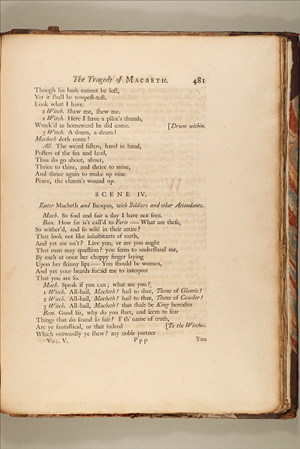 The Tragedy of MACBETH. 481
Though his bark cannot be lost,
Yet it shall be tempest-tost.
Look what I have.
2 Witch. Shew me, shew me.
1 Witch. Here I have a pilot's thumb,
Wreck'd as homeward he did come. [Drum within.
3 Witch. A drum, a drum!
Macbeth doth come!
All. The weird sisters, hand in hand,
Posters of the sea and land,
Thus do go about, about,
Thrice to thine, and thrice to mine,
And thrice again to make up nine.
Peace, the charm's wound up.
SCENE IV.
Enter Macbeth and Banquo, with Soldiers and other Attendants.
Mach. So foul and fair a day I have not seen.
Ban. How far is't call'd to Foris — What are these,
So wither'd, and so wild in their attire?
That look not like inhabitants of earth,
And yet are on't? Live you, or are you aught
That man may question? you seem to understand me,
By each at once her choppy finger laying
Upon her skinny lips — You should be women,
And yet your beards forbid me to interpret
That you are so.
Mach. Speak if you can; what are you?
1 Witch. All-hail, Macbeth! hail to thee, Thane of Glamis!
2 Witch. All-hail, Macbeth! hail to thee, Thane of Cawdor!
3 Witch. All-hail, Macbeth! that shalt be King hereafter.
Ban. Good Sir, why do you start, and seem to fear
Things that do sound so fair? I' th' name of truth,
Are ye fantastical, or that indeed [To the Witches.
Which outwardly ye shew? my noble partner
VOL. V. P p p You